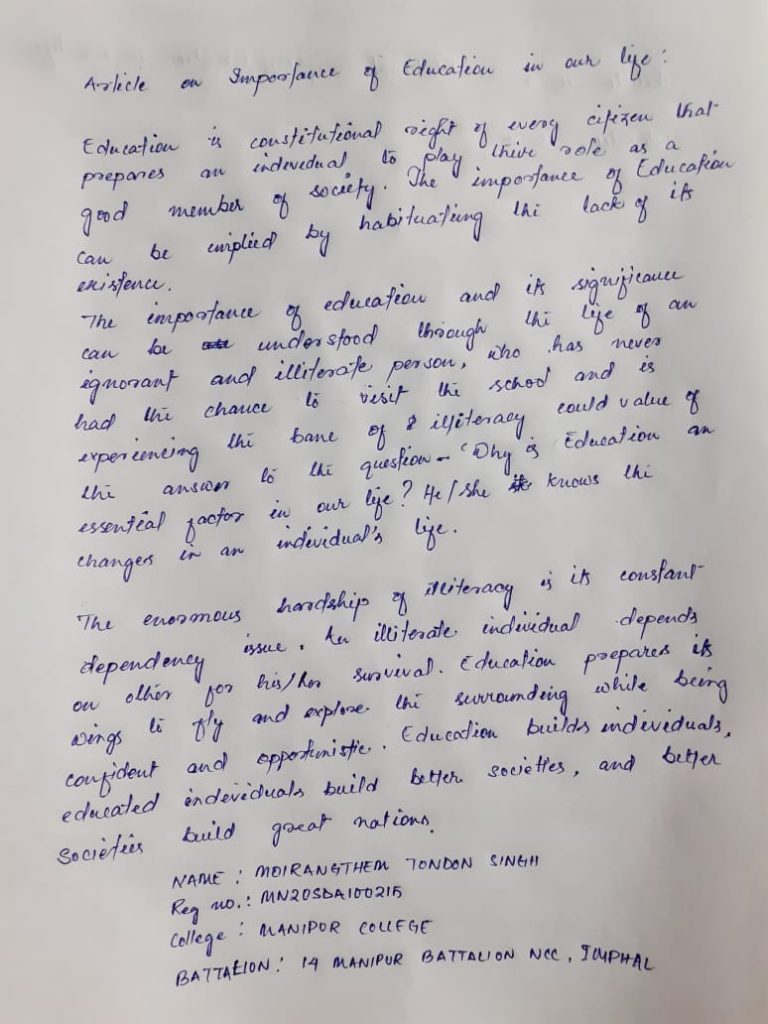 Article on Importance of Education in our life:
Education is constitutional right of every citizen that
prepares an indevedual to play thive role as a
good member of society. The importance of Education
can be implied by habituating the lack of its
existence.
The importance of education and its significance
can be understood through the life of an
ignorant and illiterate person, who has never
had the chance to visit the school and is
experiencing the bane of illiteracy could value of
the answer to the question - 'Why is Education an
essential factor in our life? He/she knows the
changes in an individual's life.
The enormous hardship of illiteracy is its constant
dependency issue. An illiterate individual depends
on other for his/her survival. Education prepares its
wings to fly and explore the surrounding while being
confident and opportunistic. Education builds individuals,
educated indeveduals build better societies, and better
Societies build great nations.
NAME : MOIRANGTHEM TONDON SINGH
Reg no.: MN20SDA100215
College : MANIPUR COLLEGE
BATTALION : 14 MANIPUR BATTALION NCC, IMPHAL